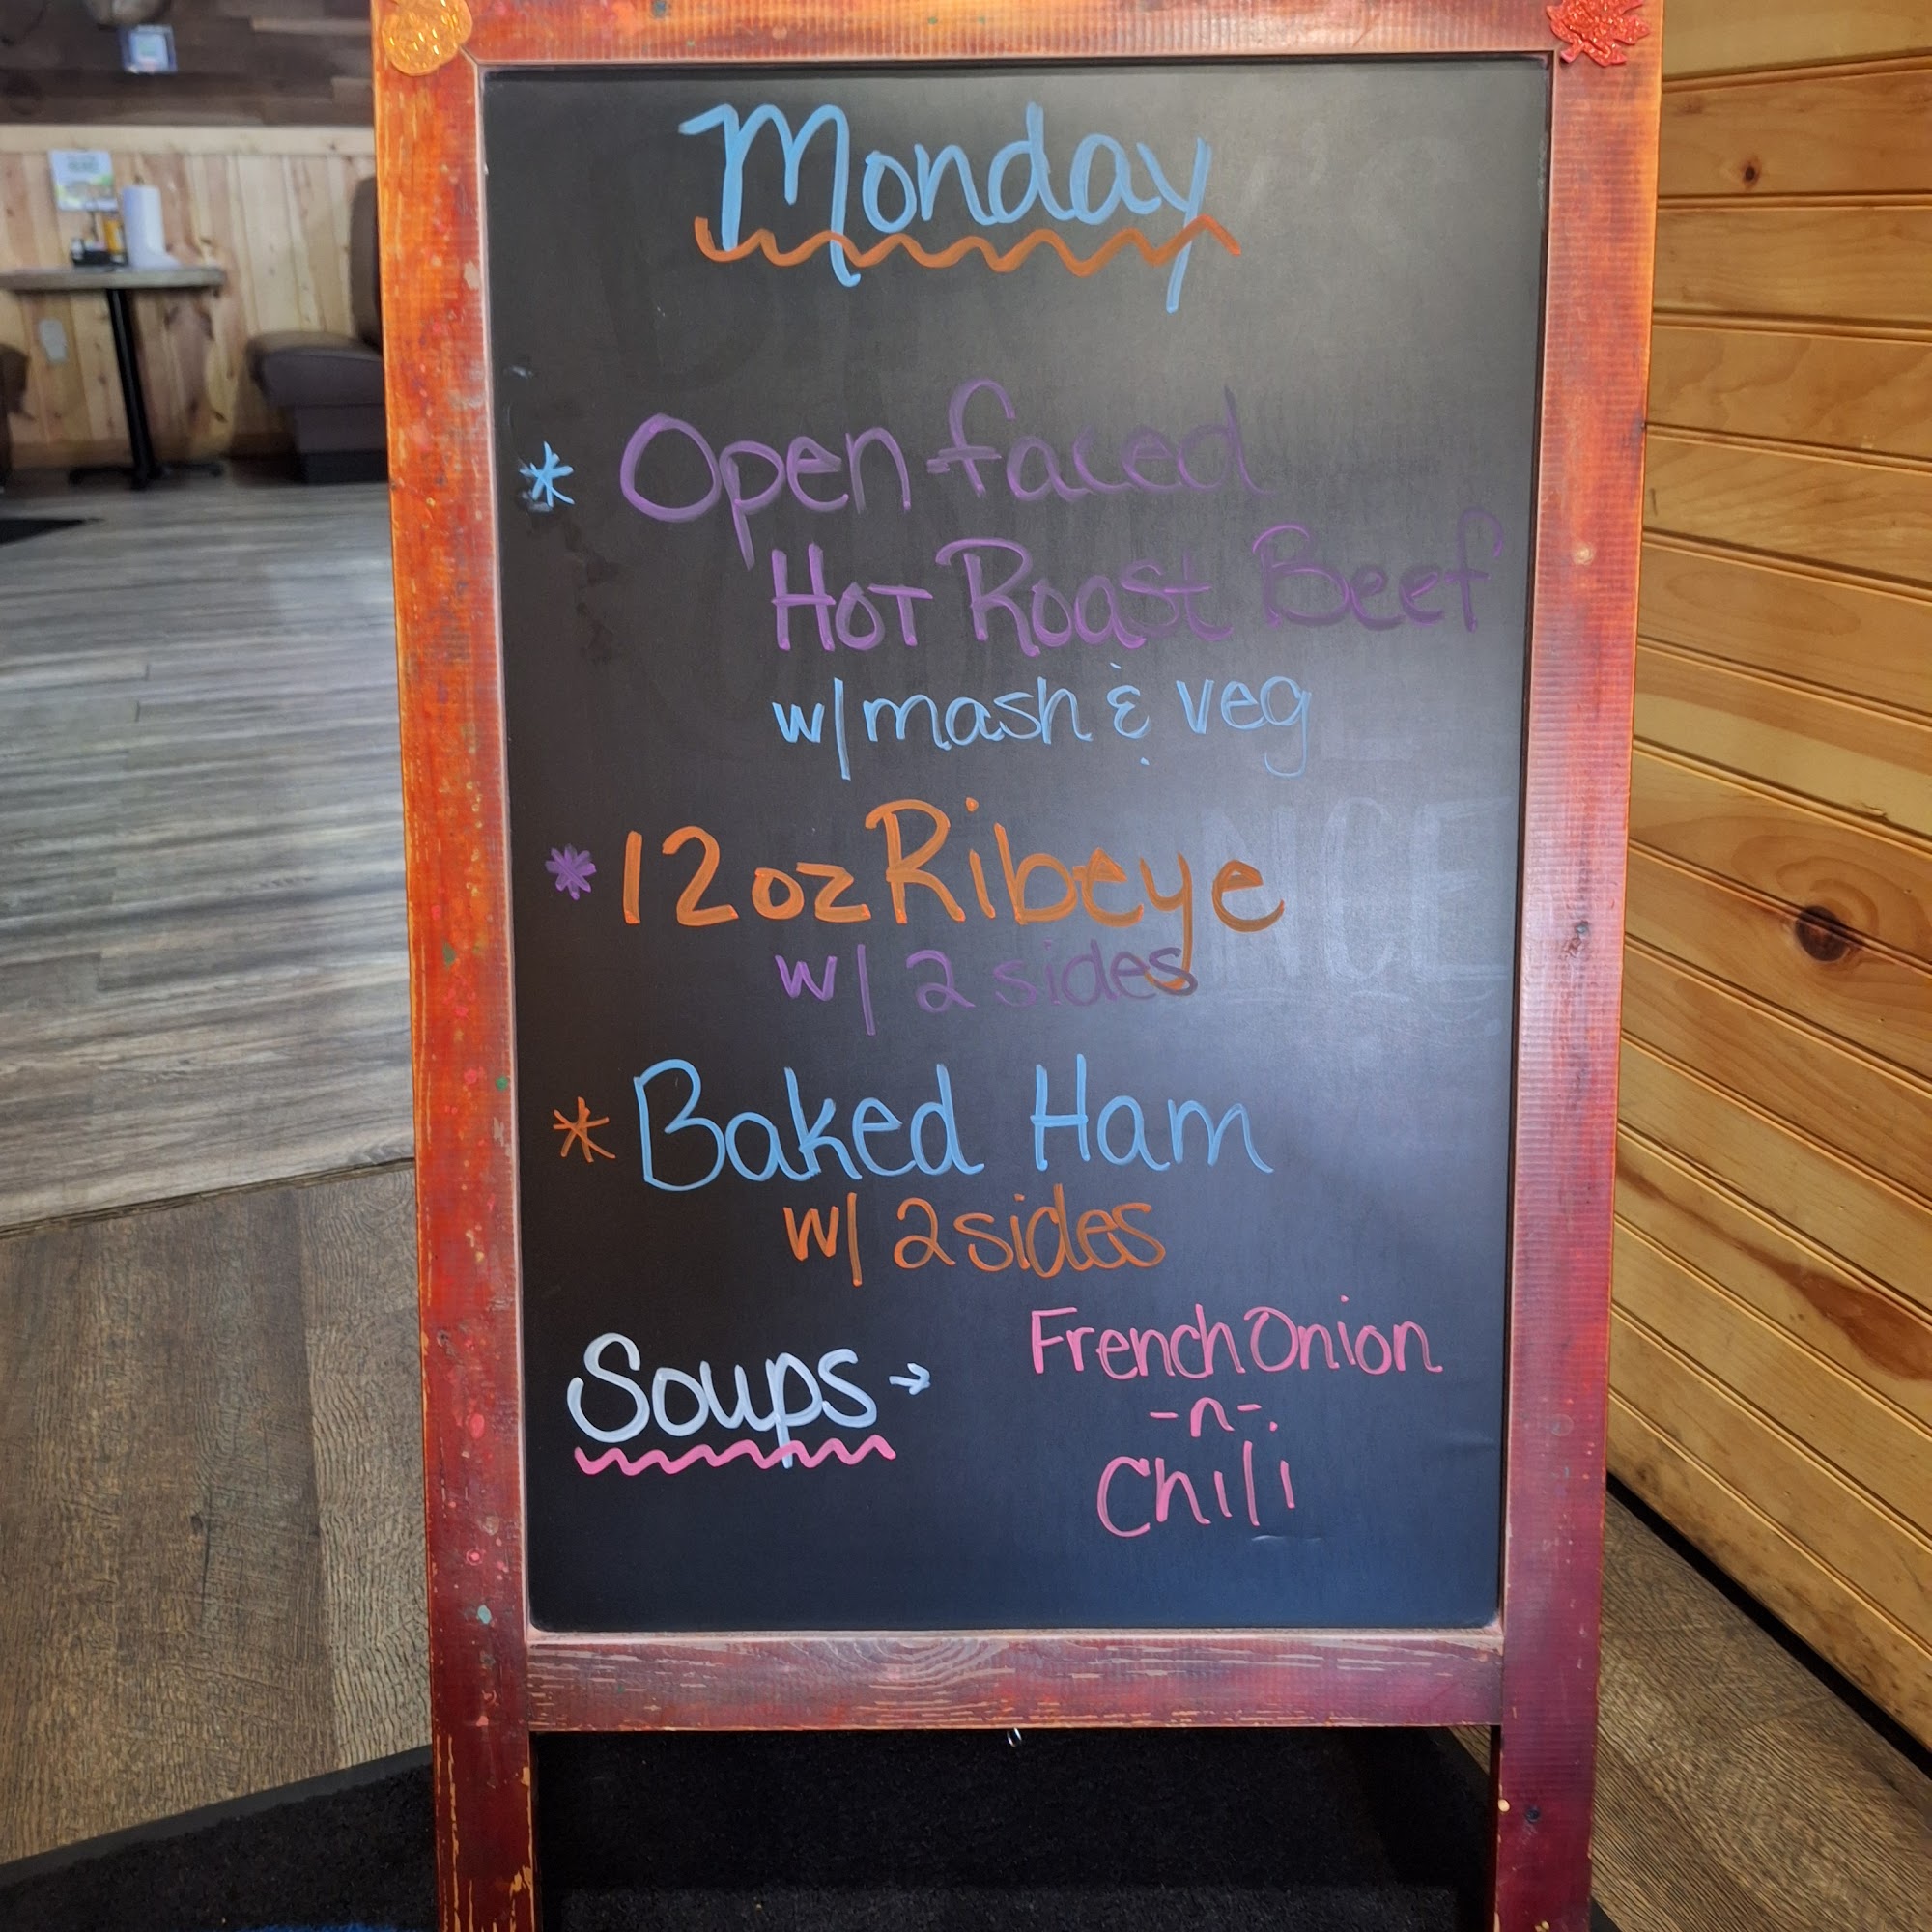 Monday
* Open faced
Hot Roast Beef
w/ mash & veg
* 12oz Ribeye
w/ 2 sides
* Baked Ham
w/ 2 sides
Soups → French Onion
-n-
Chili